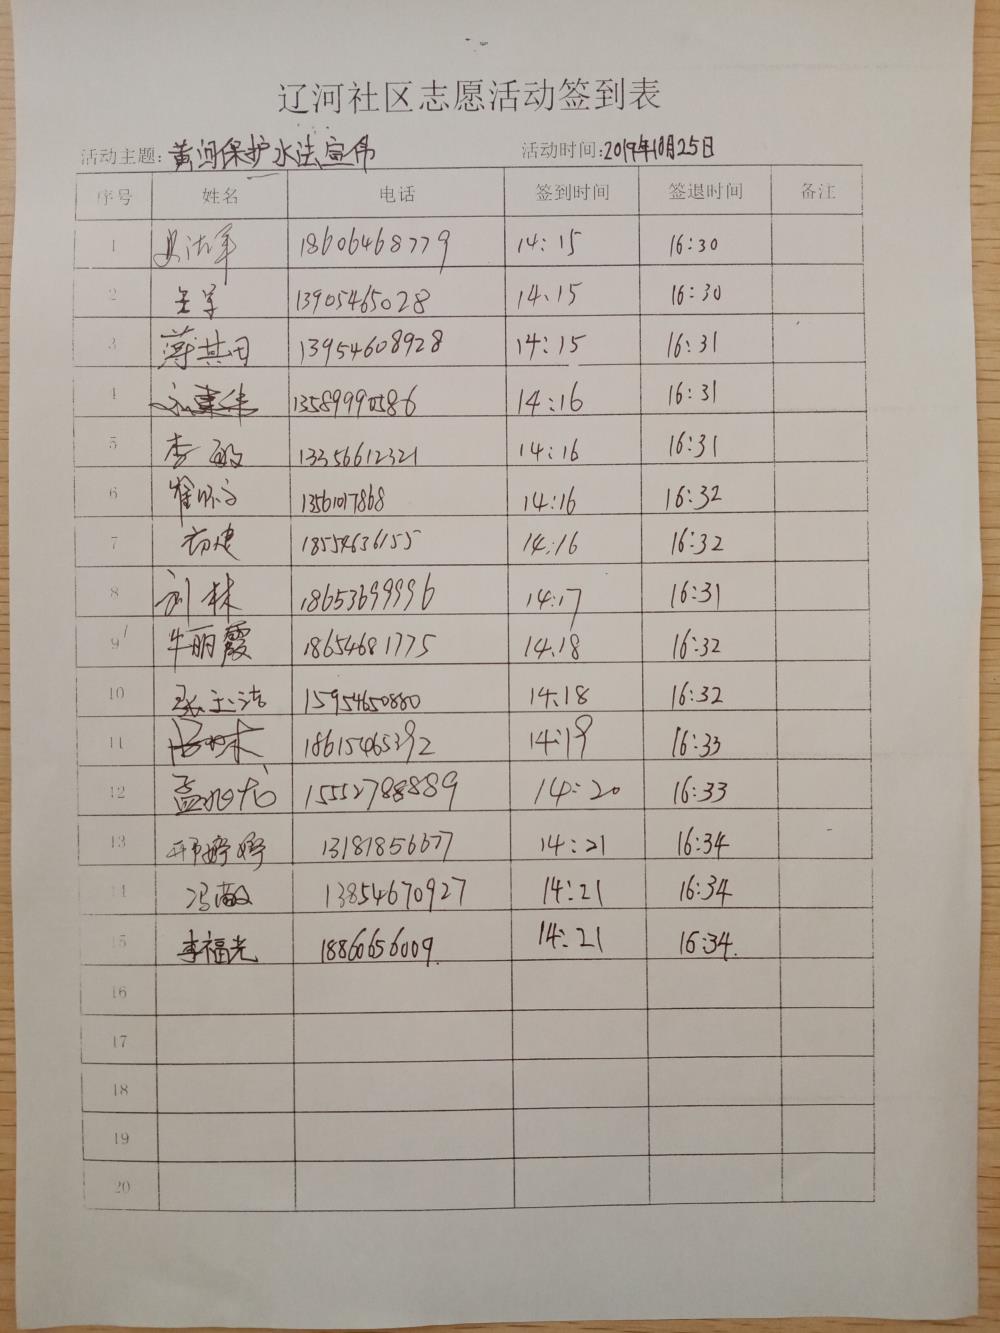 辽河社区志愿活动签到表
活动主题: 黄河保护水法宣传 活动时间:2019年10月25日
序号 姓名 电话 签到时间 签退时间 备注
1 18606468779 14:15 16:30
2 13905465028 14:15 16:30
3 薄其田 13954608928 14:15 16:31
4 13589990586 14:16 16:31
5 李敏 13356612321 14:16 16:31
6 13561017868 14:16 16:32
7 18554636155 14:16 16:32
8 刘林 18653699996 14:17 16:31
9 牛丽霞 18654681775 14:18 16:32
10 张玉洁 15954650880 14:18 16:32
11 18615465392 14:19 16:33
12 孟兆龙 15552798889 14:20 16:33
13 邢婷婷 13181856677 14:21 16:34
14 冯敏 13854670927 14:21 16:34
15 李福光 18860656009. 14:21 16:34.
16
17
18
19
20